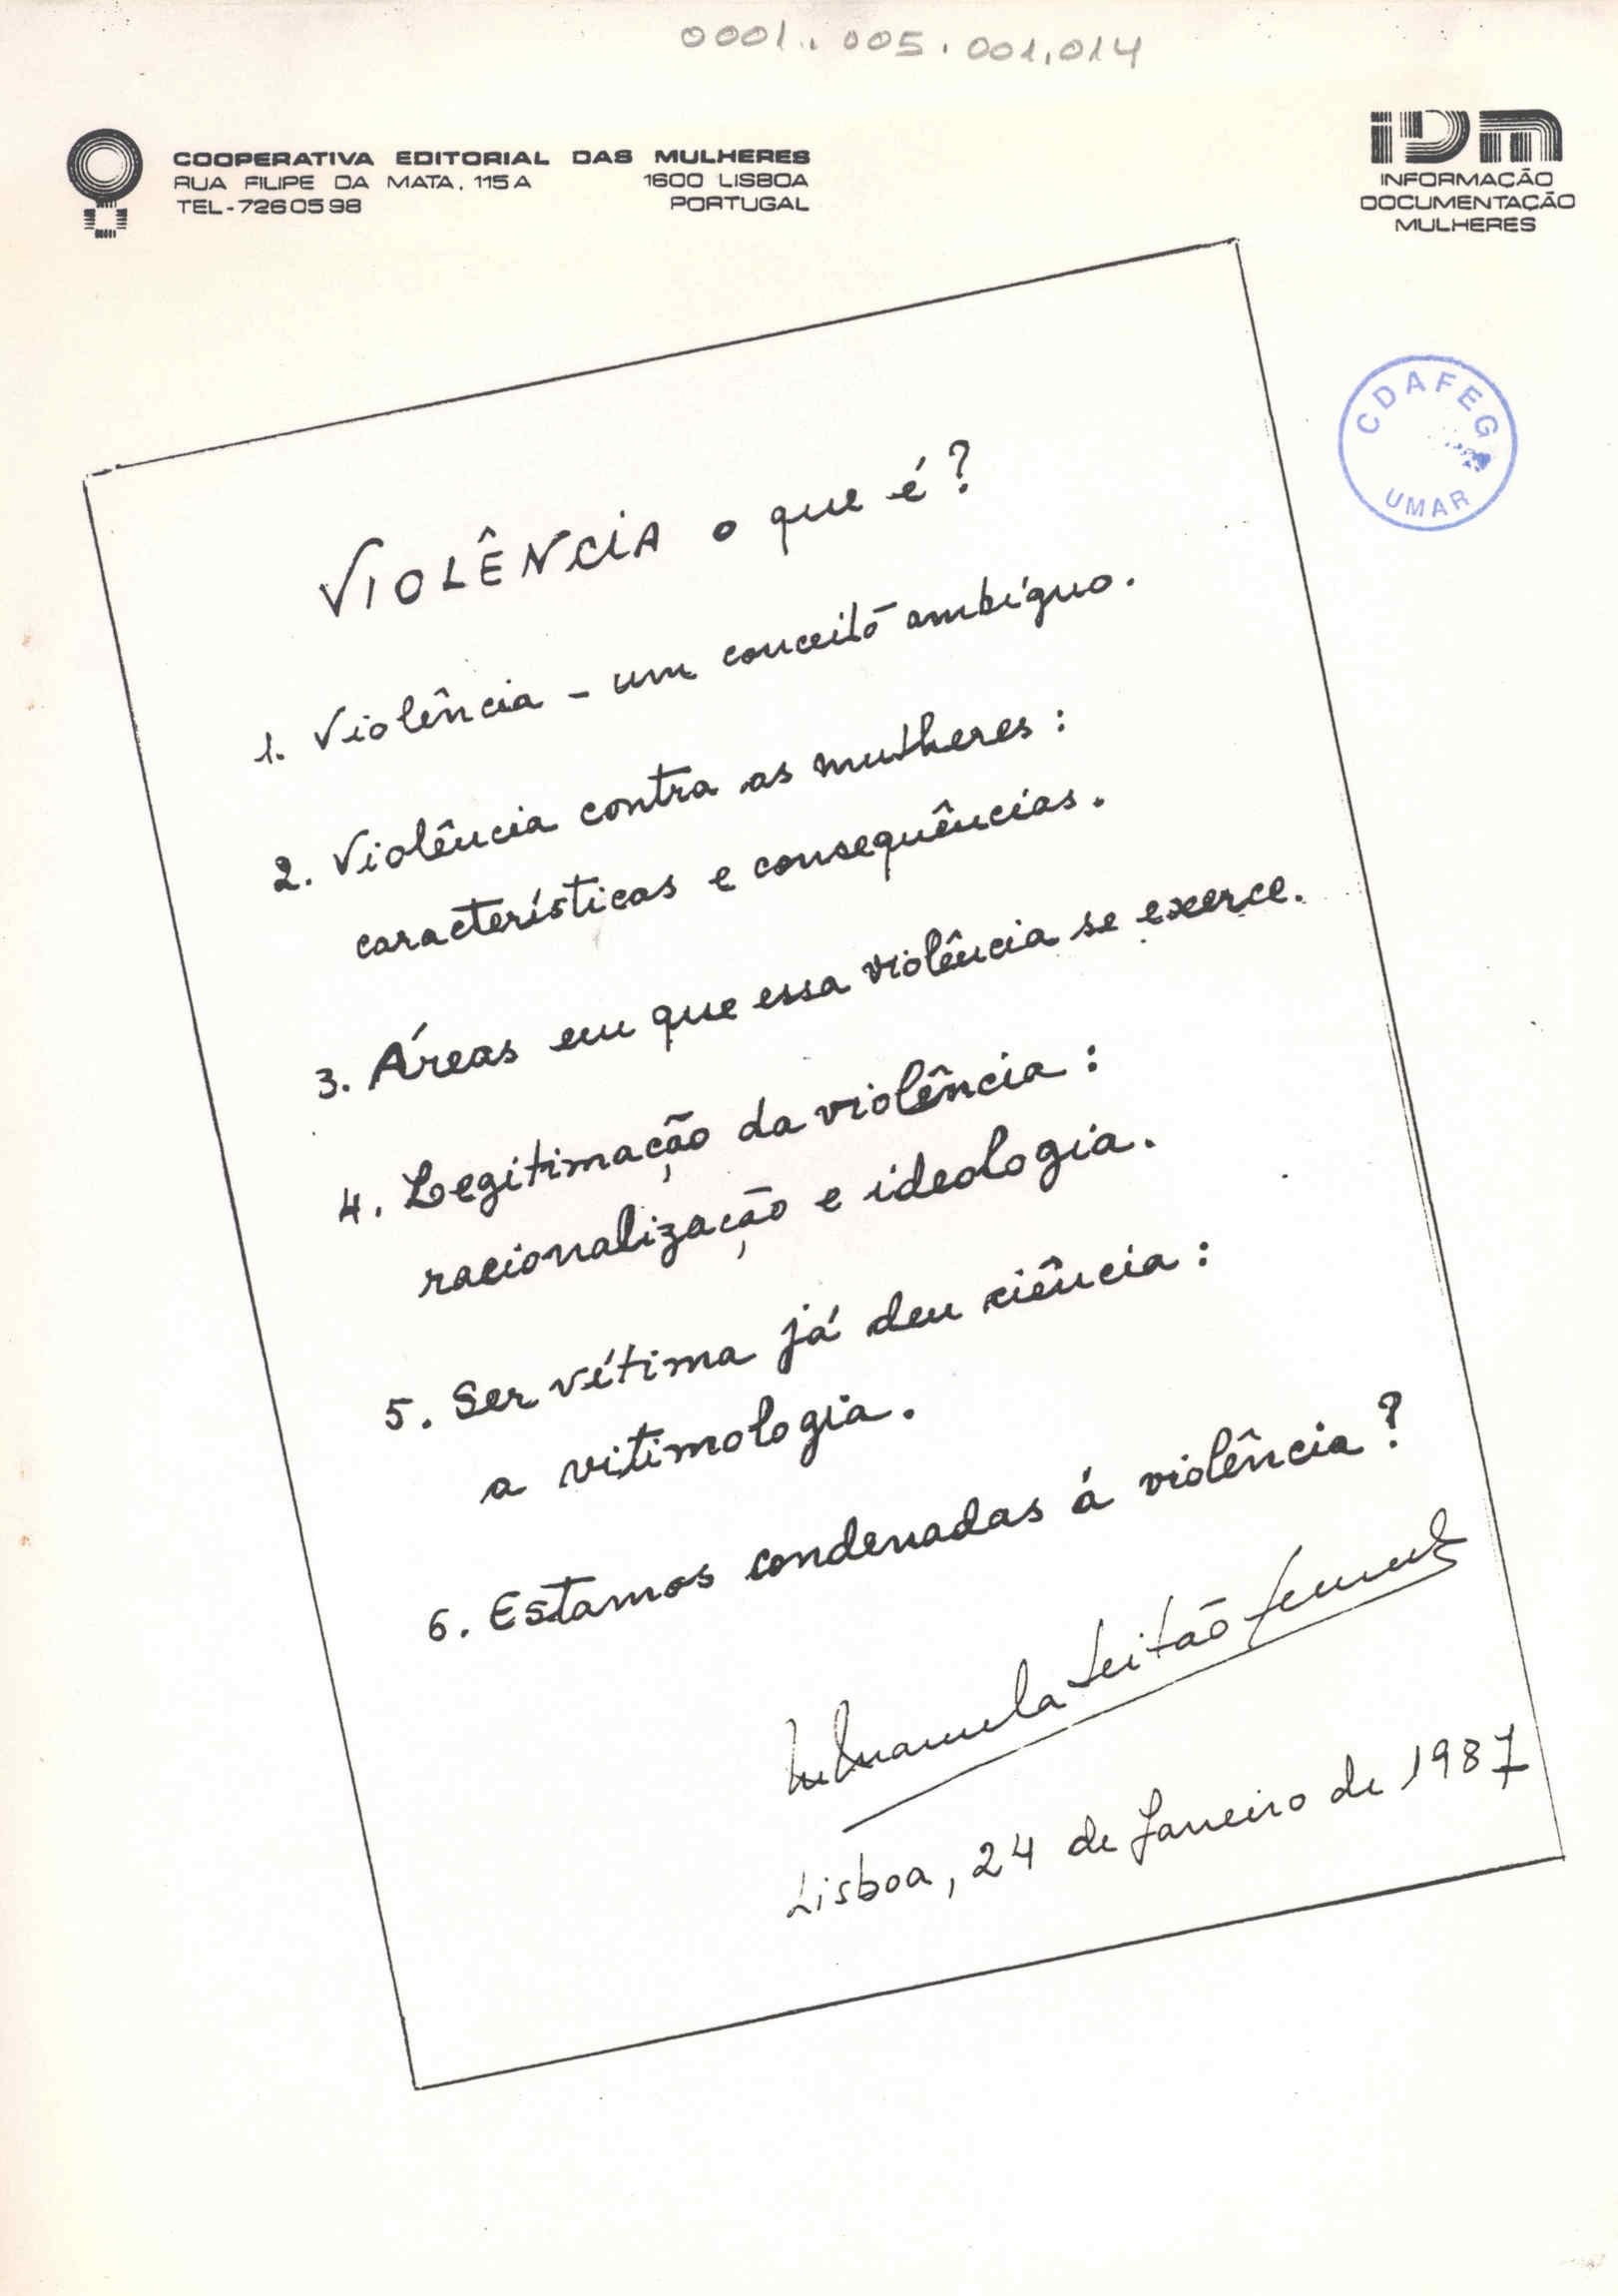 0001.005.001.014
COOPERATIVA EDITORIAL DAS MULHERES
RUA FILIPE DA MATA, 115 A 1600 LISBOA
TEL-7260598 PORTUGAL
IDM
INFORMAÇÃO
DOCUMENTAÇÃO
MULHERES
CDAFEG
UMAR
VIOLÊNCIA o que é?
1. Violência - um conceito ambíguo.
2. Violência contra as mulheres:
características e consequências.
3. Áreas em que essa violência se exerce.
4. Legitimação da violência:
racionalização e ideologia.
5. Ser vítima já deu ciência:
a vitimologia.
6. Estamos condenadas á violência?
Manuela Leitão
Lisboa, 24 de Janeiro de 1987